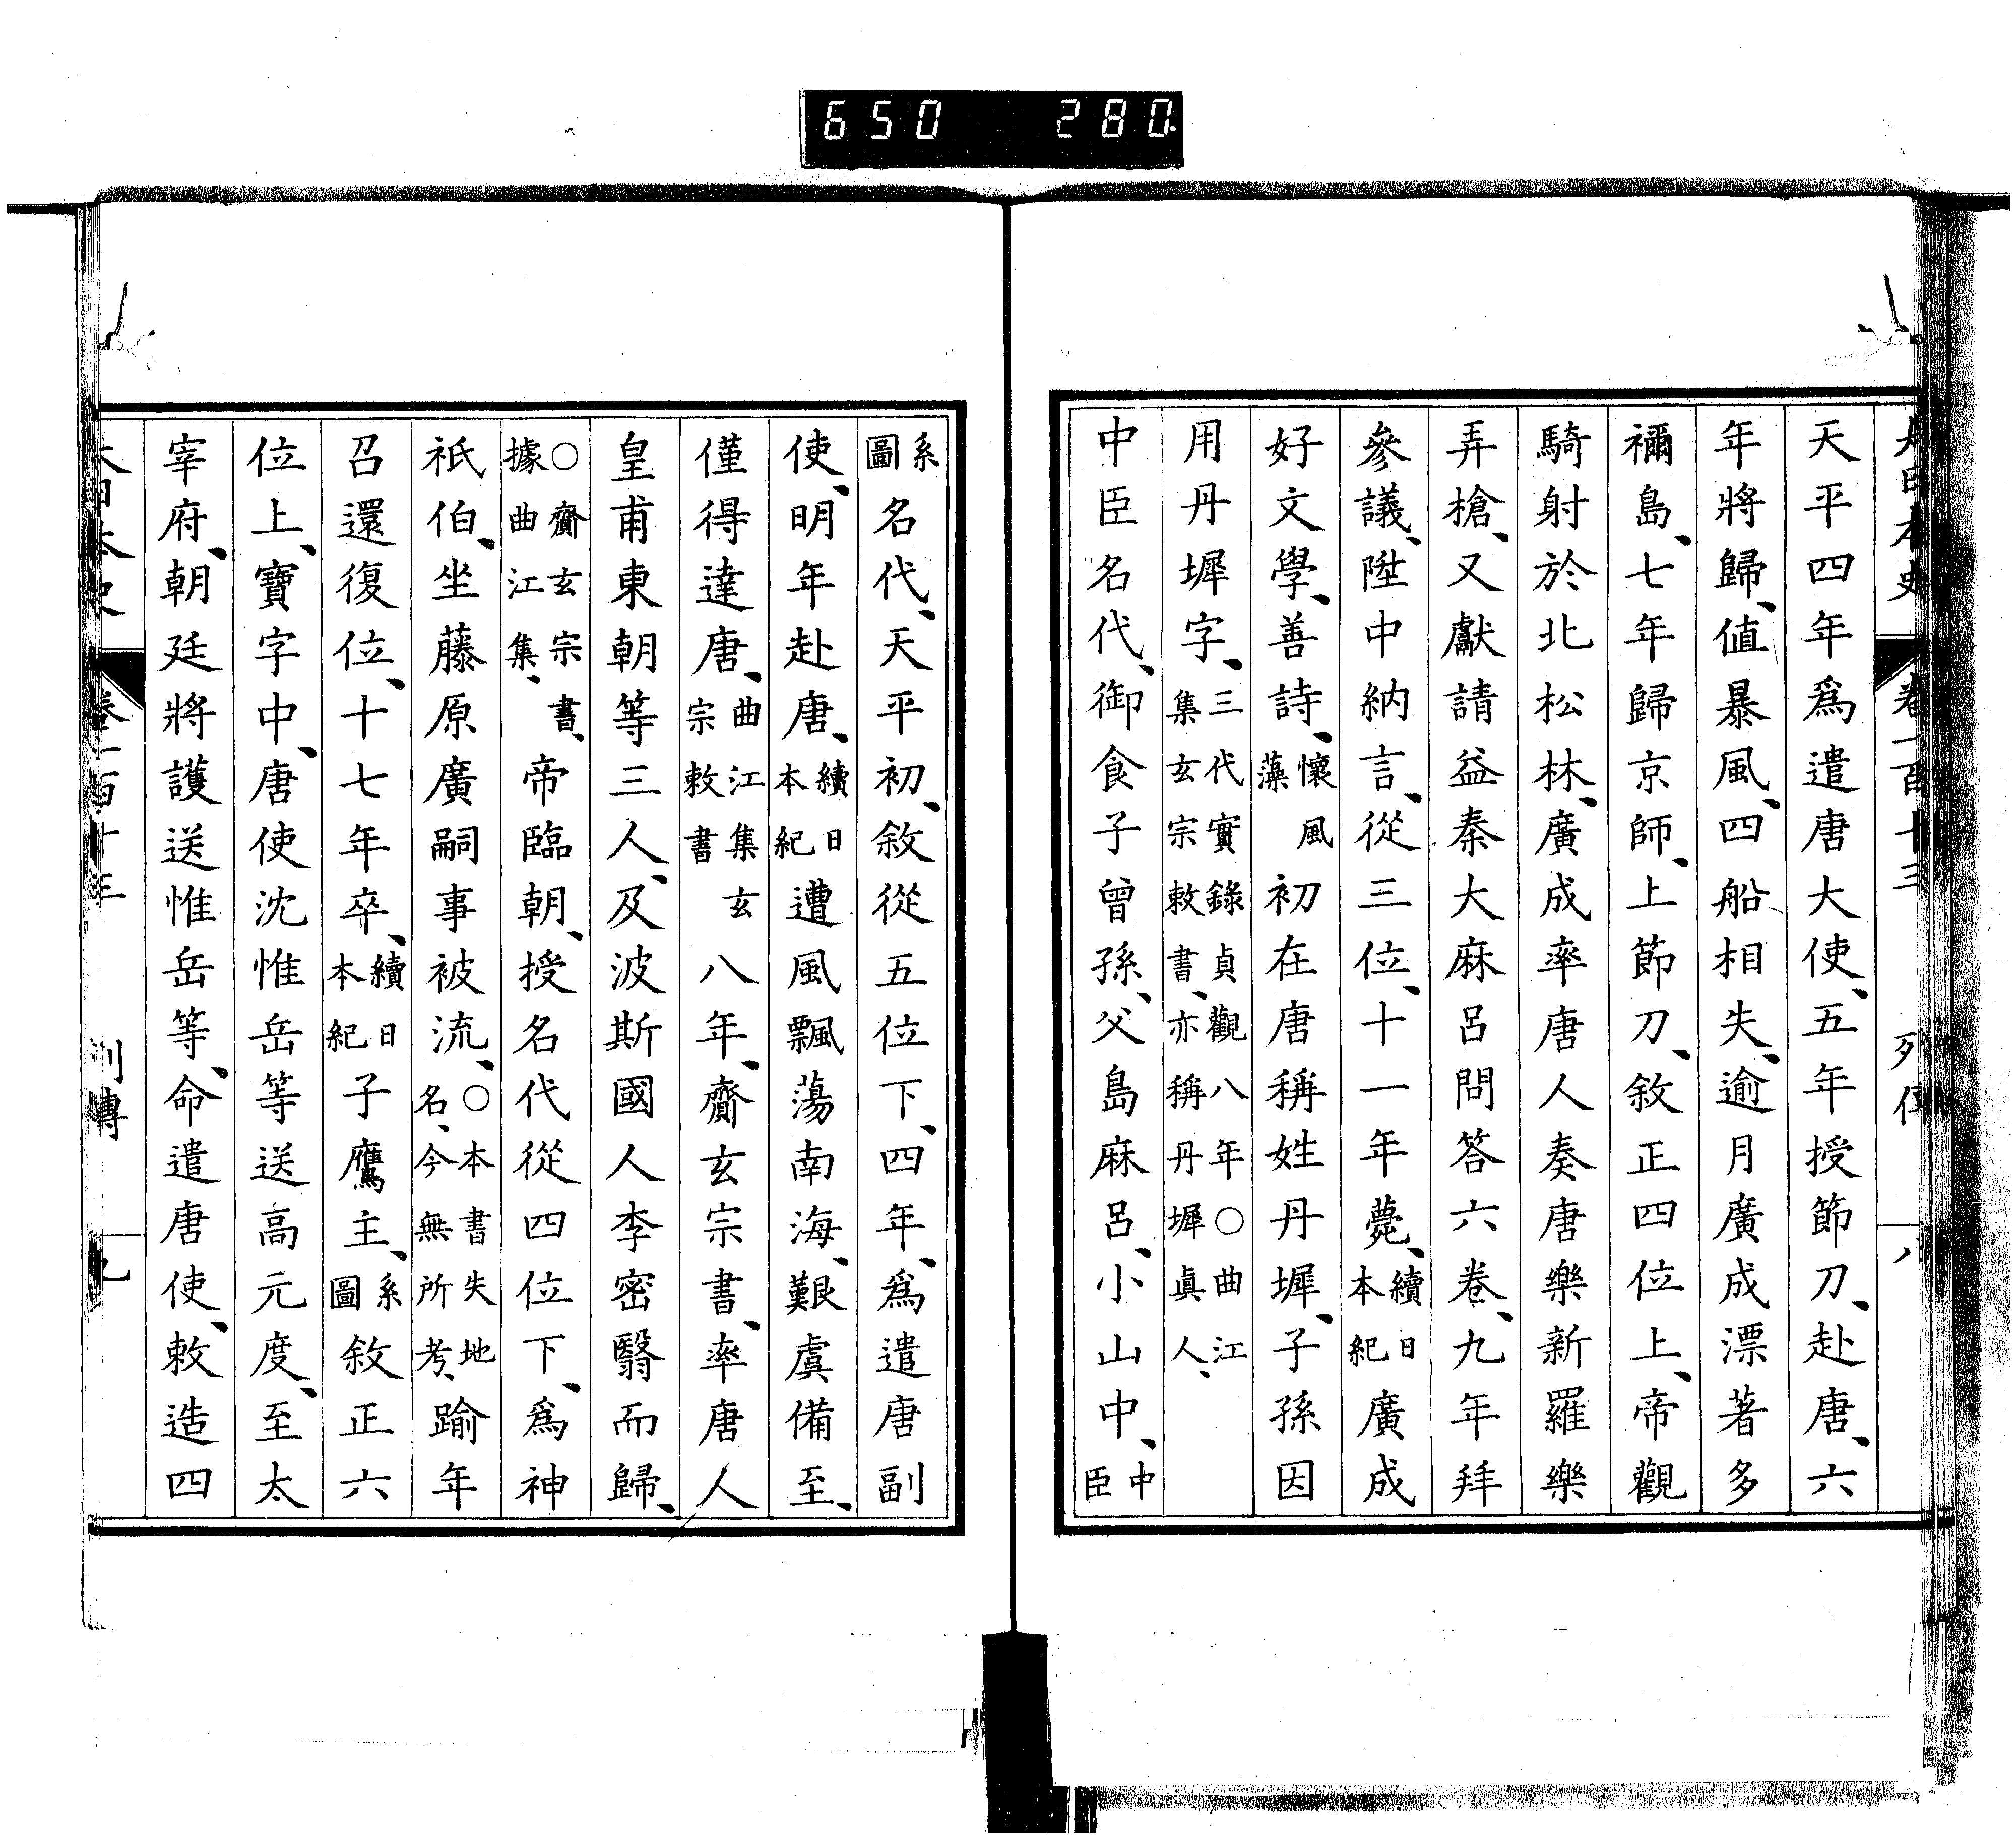 650 280
大日本史 卷一百十三 列傳 八
天平四年爲遣唐大使、五年授節刀、赴唐、六
年將歸、値暴風、四船相失、逾月廣成漂著多
禰島、七年歸京師、上節刀、敘正四位上、帝觀
騎射於北松林、廣成率唐人奏唐樂新羅樂
弄槍、又獻請益秦大麻呂問答六卷、九年拜
參議、陞中納言、從三位、十一年薨、續日本紀廣成
好文學、善詩、懷風藻初在唐稱姓丹墀、子孫因
用丹墀字、三代實錄貞觀八年○曲江集玄宗敕書、亦稱丹墀眞人、
中臣名代、御食子曾孫、父島麻呂、小山中、中臣
系圖名代、天平初、敘從五位下、四年、爲遣唐副
使、明年赴唐、續日本紀遭風飄蕩南海、艱虞備至、
僅得達唐、曲江集玄宗敕書八年、齎玄宗書、率唐人
皇甫東朝等三人、及波斯國人李密翳而歸、
○齎玄宗書、據曲江集、帝臨朝、授名代從四位下、爲神
祇伯、坐藤原廣嗣事被流、○本書失地名、今無所考、踰年
召還復位、十七年卒、續日本紀子鷹主、系圖敘正六
位上、寶字中、唐使沈惟岳等送高元度、至太
宰府、朝廷將護送惟岳等、命遣唐使、敕造四
大日本史 卷一百十三 列傳 九